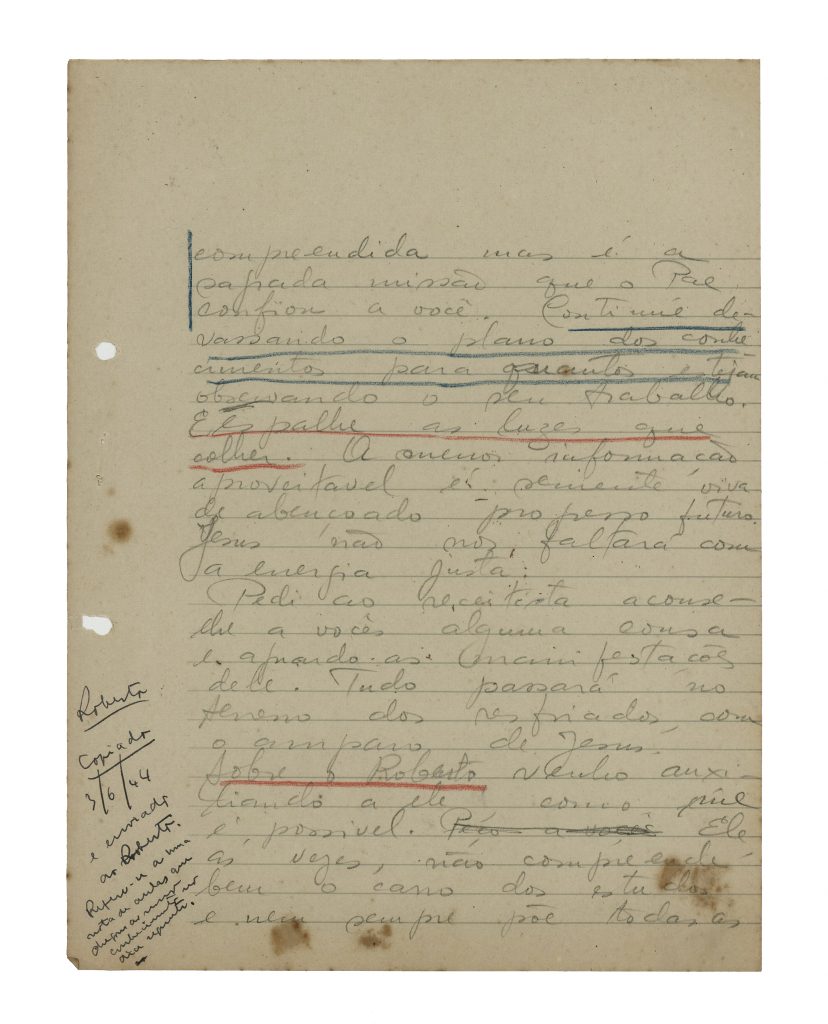 compreendida mas é a
sagrada missão que o Pae
confiou a você. Continúe de-
vassando o plano dos conhe
cimentos para quantos estejam
observando o seu trabalho.
E espalhe as luzes que
colher. A menor informação
aproveitavel é semente viva
de abençoado progresso futuro.
Jesus não nos faltará com
a energia justa.
Pedi ao receitista aconse-
lhe a vocês alguma cousa
e aguardo as manifestações
dele. Tudo passará no
terreno dos resfriados, com
o amparo de Jesus.
Sobre o Roberto venho auxi-
liando a ele como me
é possivel. Peço a vocês Ele
ás vezes, não compreende
bem o caso dos estudos
e nem sempre põe todas as
Roberto
Copiado
3/6/44
e enviado
ao Roberto.
Refere-se a uma
nota de aulas que